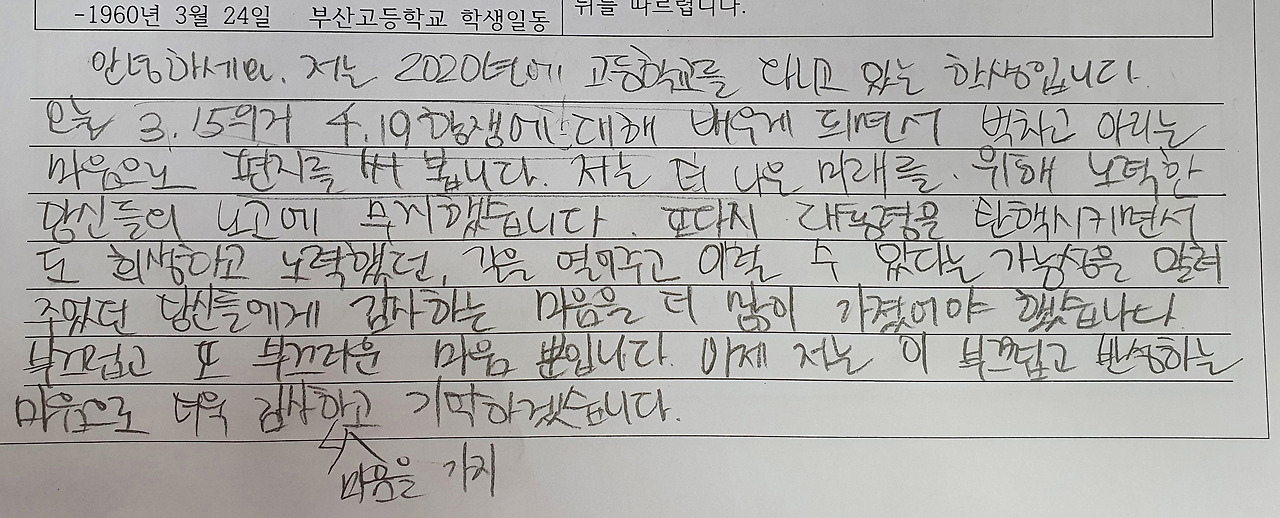 -1960년 3월 24일 부산고등학교 학생일동
뒤를 따르렵니다.
안녕하세요. 저는 2020년에 고등학교를 다니고 있는 학생입니다.
오늘 3.15의거 4.19항쟁에 대해 배우게 되면서 벅차고 아리는
마음으로 편지를 써 봅니다. 저는 더 나은 미래를 위해 노력한
당신들의 노고에 무지했습니다. 또다시 대통령을 탄핵시키면서
또 희생하고 노력했던, 길을 열어주고 이럴 수 있다는 가능성을 알려
주었던 당신들에게 감사하는 마음을 더 많이 가졌어야 했습니다.
부끄럽고 또 부끄러운 마음 뿐입니다. 이제 저는 이 부끄럽고 반성하는
마음으로 더욱 감사하고 기억하겠습니다.
마음을 가지